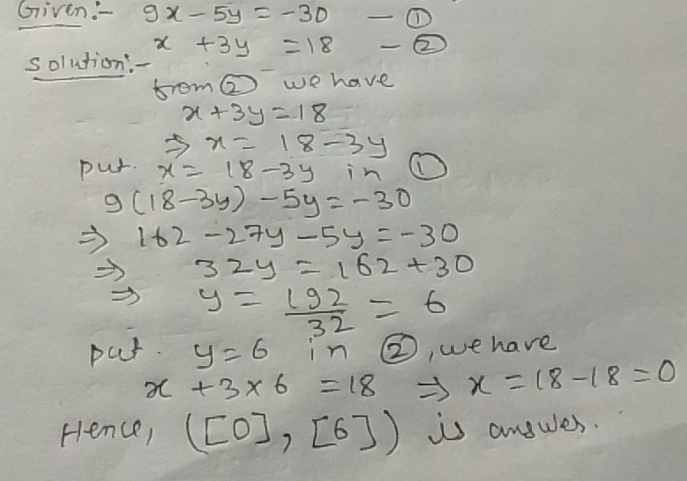 Given:- 9x - 5y = -30 - ①
x + 3y = 18 - ②
Solution:-
from ② we have
x + 3y = 18
⇒ x = 18 - 3y
put. x = 18 - 3y in ①
9(18 - 3y) - 5y = -30
⇒ 162 - 27y - 5y = -30
⇒ 32y = 162 + 30
⇒ y = 192/32 = 6
put. y = 6 in ②, we have
x + 3 x 6 = 18 ⇒ x = 18 - 18 = 0
Hence, ([0], [6]) is answer.